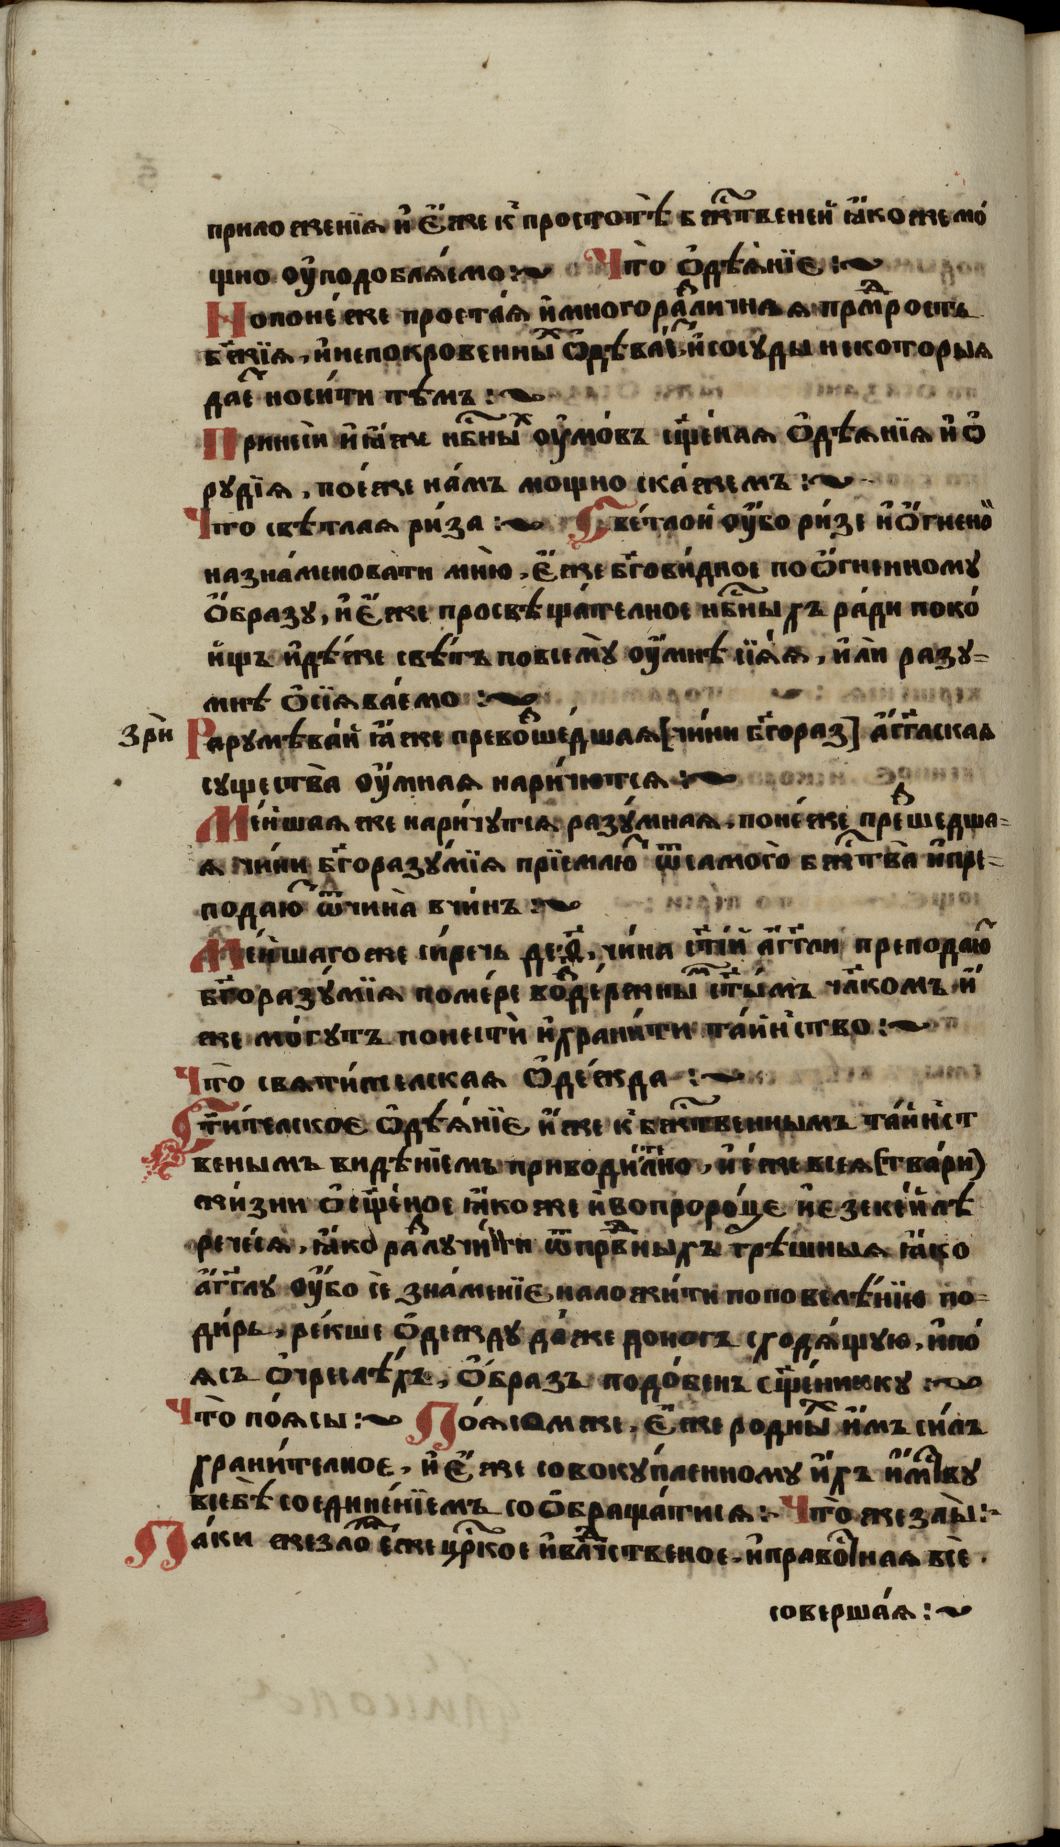 приложенїѧ и҆ є҆́же к̾ простотѣ̀ бжⷭ҇твеней ꙗ҆́коже мо́
щно ᲂу҆подоблѧ́емо:~ Что̀ ѻ҆дѣѧ́нїе:~
Но поне́же проста́ѧ и҆ многора́ᵈличнаѧ прⷨ҇дрость
бж҃їѧ, и҆ непокровенныⷯ ѡ҆дѣва́еⷮ, и҆ сосу́ды некоторыѧ
дае́ⷮ носи́ти тѣ́мъ:~
Принеси и҆ ꙗ҆́же нбⷭ҇ныⷯ ᲂу҆мо́въ сщ҃е́наѧ ѻ҆дѣѧнїѧ и҆ ѻ҆
рудїѧ, пое́же на́мъ мощно ска́жемъ:~
Что свѣтлаѧ ри́за:~ Све́тлой ᲂу҆́бо ри́зе и҆ ѻ҆́гненоⷤ
назна́меновати мню̀, є҆́же бг҃ови́дное по ѻ҆́гненному
ѻ҆́бразу, и҆ є҆́же просвѣща́телное нбⷭ҇ныхъ ра́ди поко́
ищъ и҆дѣ́же свѣ́тъ по всемꙋ̀ ᲂу҆́мнѣ сїѧ́ѧ, и҆лѝ разу-
мнѣ ѡ҆сїѧва́емо:~
Зрѝ Разумѣва́й ꙗ҆́же превоⷥше́дшаѧ [чи́ни бг҃ораз] а҆́гг҃лскаѧ
существа̀ ᲂу҆́мнаѧ нари́чютсѧ:~
Ме́ншаѧ же нари́чутсѧ разу́мнаѧ, поне́же преⷥшедша-
ѧ чи́ни бг҃оразу́мїѧ прїемлю́ⷮ ѿ самого̀ бжⷭ҇тва̀ и҆ пре-
подаю́ⷮ ѿ чи́на в чи́нъ:~
Ме́ншаго же си́речь деⷡ҇, чи́на ст҃і́й а҆́гг҃ли преподаю́ⷮ
бг҃оразу́мїѧ по ме́ре воⷥде́ржны ст҃ы́мъ чл҃комъ и҆́
же мо́гутъ понестѝ и҆ храни́ти та́йнство:~
Что̀ свѧти́телскаѧ ѻ҆де́жда:~
Ст҃и́телское ѻ҆дѣѧ́нїе и҆́же к̾ бжⷭ҇твеннымъ та́йнст
венымъ видѣнїемъ приводи́телⷭ҇но, и҆ е́же всеѧ̀ (твари)
жи́зни ѻ҆сщ҃е́ное ꙗ҆́коже и҆ во проро́це и҆езеке́йлѣ
рече́сѧ, ꙗ҆́ко раⷥлучи́ти ѿ првⷣныхъ грѣшныѧ ꙗ҆́ко
а҆́гг҃лу ᲂу҆́бо сѐ зна́менїе наложи́ти по повелѣ́нїю по-
ди́рь, ре́кше ѻ҆де́жду да́же до ногъ сходѧ́щую, и҆ по́
ѧсъ ѻ҆ чреслѣ́хъ, ѻ҆́бразъ подо́бенъ сщ҃е́ннику:~
Что по́ѧсы:~ По́ѧсом же, є҆́же родныⷯ и҆́мъ си́лъ
храни́телное, и҆ є҆́же совокупленному и҆́хъ и҆́мⷭ҇тву
в себѣ̀ соедине́нїемъ соѻ҆браща́тисѧ: Что̀ жезлы̀:~
Па́ки жезло́ⷨ є҆́же црⷭ҇кое и҆ влⷣчственое, и҆ пра́вⷭ҇тнаѧ всѐ
соверша́ѧ:~